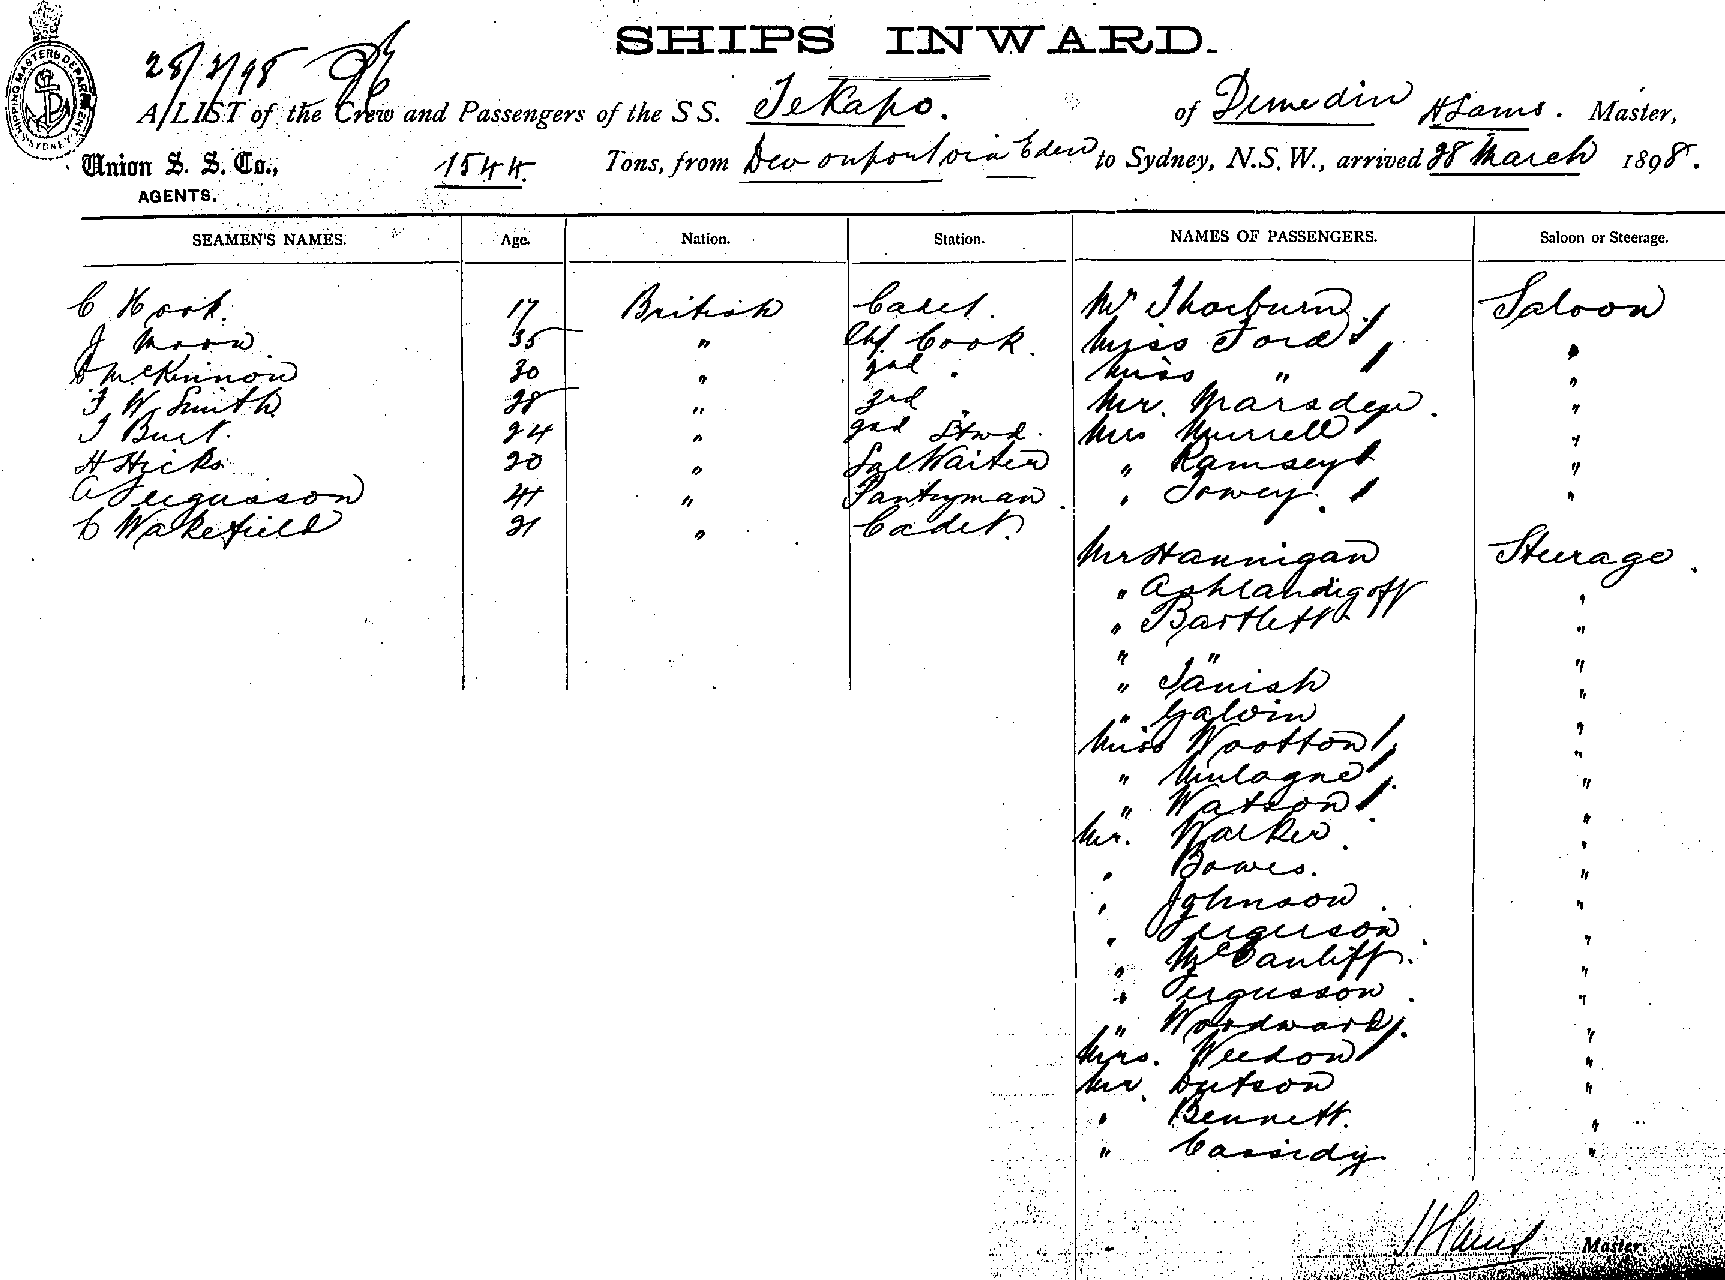 SHIPS INWARD.
28/3/98
A LIST of the Crew and Passengers of the SS. Tekapo. of Dunedin Master,
Union S. S. Co., 1544 Tons, from Devonport via Eden to Sydney, N.S.W., arrived 28 March 1898.
AGENTS.
SHIPPING MASTERS DEPARTMENT SYDNEY
SEAMEN'S NAMES. Age. Nation. Station. NAMES OF PASSENGERS. Saloon or Steerage.
C Hook. 17 British Cadet. Mr Thorburn Saloon
J Moon 35 " Chf Cook. Miss Ford "
McKinnon 30 " 2nd " Miss " "
F W Smith 28 " 3rd " Mr. Marsden. "
T Burt. 24 " 2nd Stwd. Mrs Murrell "
H Hicks 20 " Sal Waiter " Ramsey "
A Fergusson 41 " Pantryman " Towey. "
C Wakefield 21 " Cadet.
Mr Hannigan Steerage.
" "
" Bartlett "
" " "
" Tanish "
" Galvin "
Miss Wootton "
" "
" Watson "
Mr. Walker "
" Bowes. "
" Johnson "
" Ferguson "
" McCauliff. "
" Fergusson "
" Woodward. "
Mrs. Weedon "
Mr. Dutson "
" Bennett. "
" Cassidy "
Master.